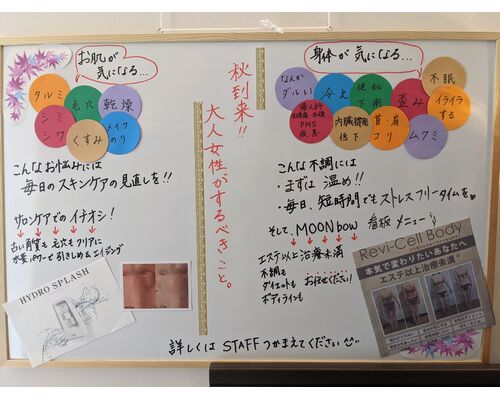 お肌が
気になる...
タルミ
毛穴
乾燥
シミ
シワ
くすみ
メイク
のり
こんなお悩みには
毎日のスキンケアの見直しを!!
サロンケアでのイチオシ!
古い角質も毛穴もクリアに
水素パワーで引きしめ&エイジング
HYDRO SPLASH
秋到来!!
大人女性がするべきこと。
身体が気になる...
なんか
ダルい
冷え
便秘
下痢
歪み
不眠
イライラ
する
婦人科
PMS
疾患
内臓機能
低下
首肩
コリ
ムクミ
こんな不調には
・まずは 温め!!
・毎日、短時間でもストレスフリータイムを
そして、MOON bow 看板メニュー
エステ以上治療未満
不調も
ダイエットも お任せください!
ボディラインも
Revi-Cell Body
本気で変わりたいあなたへ
エステ以上治療未満
詳しくは STAFFつかまえてください